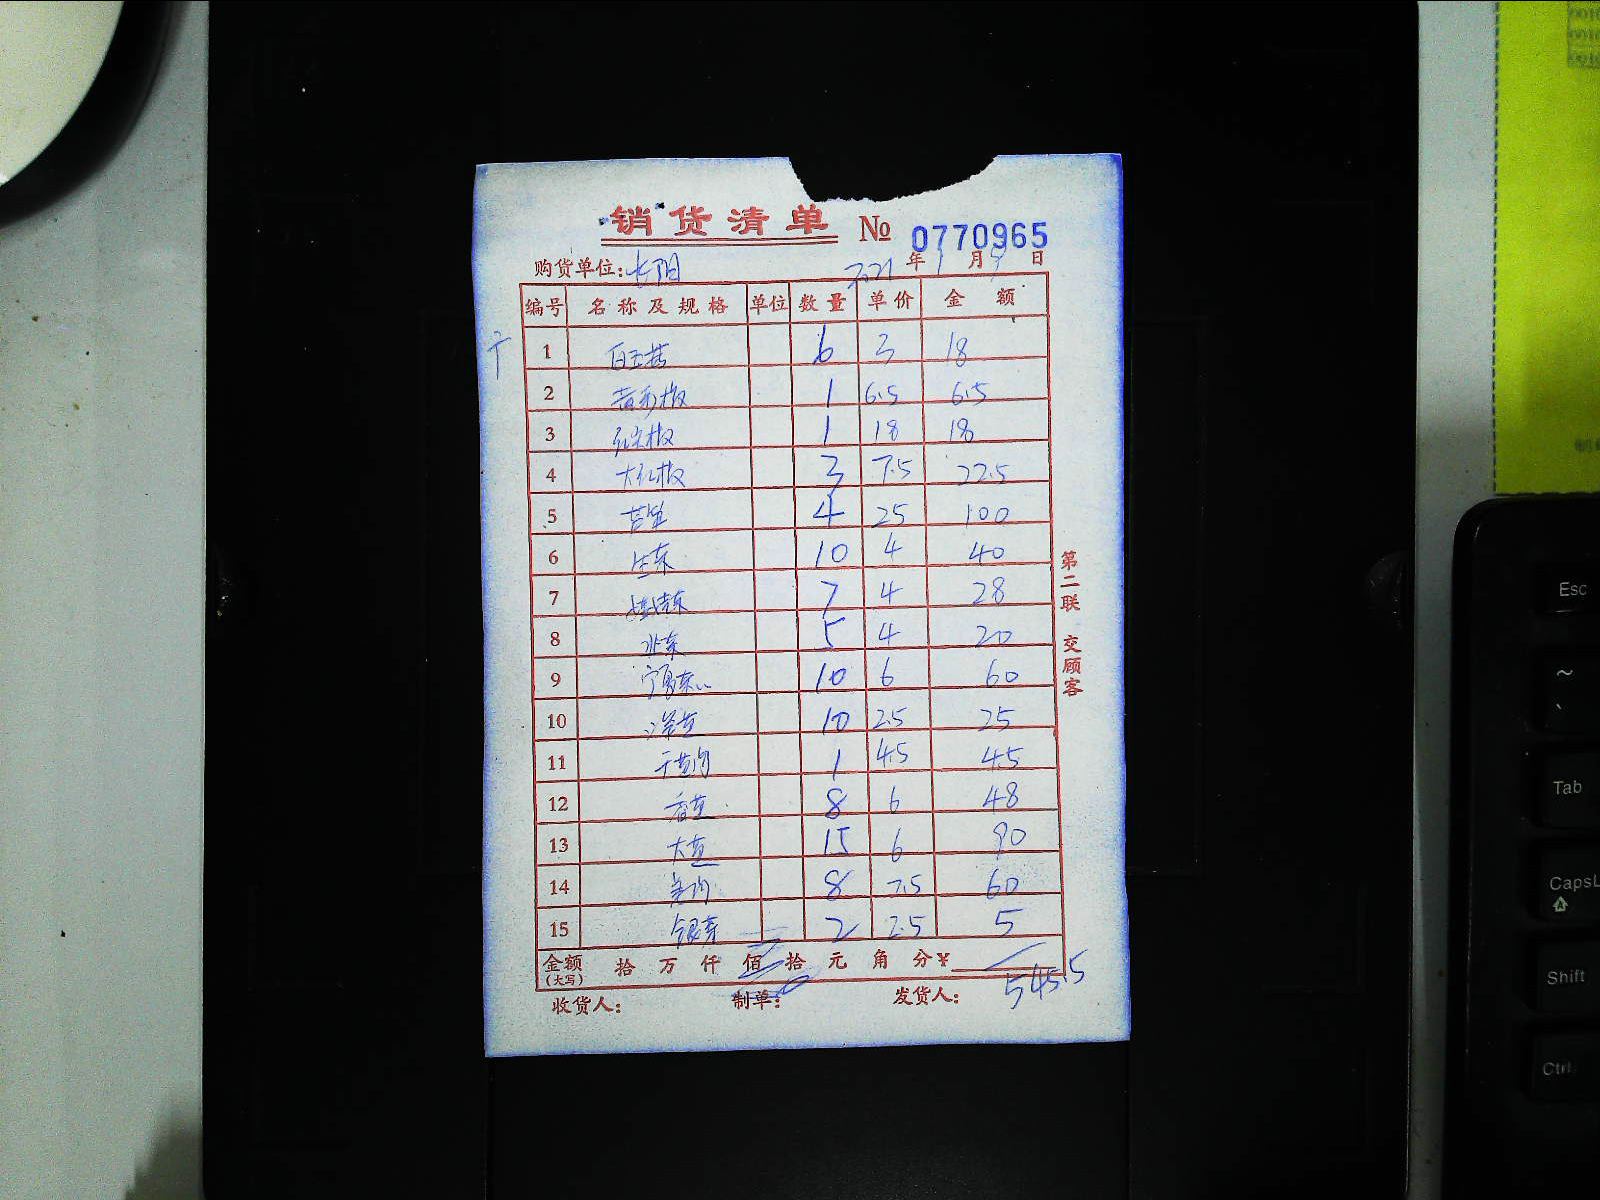 销货清单 № 0770965
购货单位:长阳 2021年1月9日
编号 名称及规格 单位 数量 单价 金额
1 白玉菇 6 3 18
2 黄彩椒 1 6.5 6.5
3 1 18 18
4 大红椒 3 7.5 22.5
5 4 25 100
6 生菜 10 4 40
7 娃娃菜 7 4 28
8 5 4 20
9 宁夏菜心 10 6 60
10 10 2.5 25
11 1 4.5 4.5
12 8 6 48
13 15 6 90
14 8 7.5 60
15 银芽 2 2.5 5
金额(大写) 拾 万 仟 佰 拾 元 角 分 ¥ 545.5
收货人: 制单: 发货人:
第二联 交顾客
Esc
~
`
Tab
CapsL
Shift
Ctrl